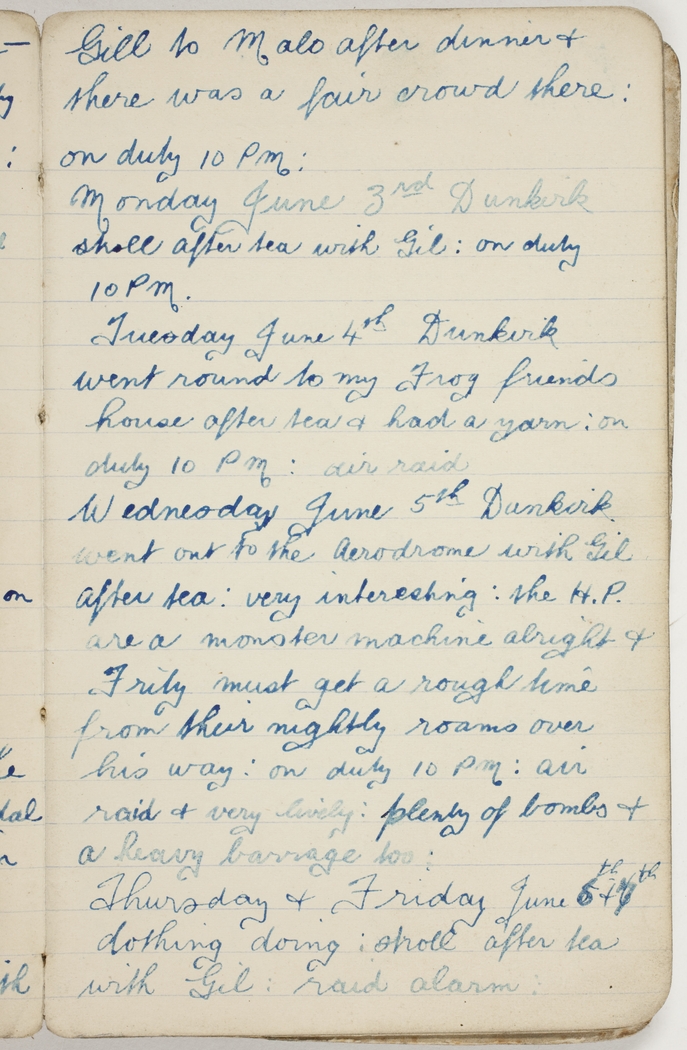 Gill to Malo after dinner &
there was a fair crowd there:
on duty 10 PM:
Monday June 3rd Dunkirk
stroll after tea with Gil: on duty
10 PM.
Tuesday June 4th Dunkirk
went round to my Frog friends
house after tea & had a yarn: on
duty 10 PM: air raid
Wednesday June 5th Dunkirk
went out to the Aerodrome with Gil
after tea: very interesting: the H.P.
are a monster machine alright &
Fritz must get a rough time
from their nightly roams over
his way: on duty 10 PM: air
raid & very lively: plenty of bombs &
a heavy barrage too:
Thursday & Friday June 6th & 7th
dothing doing: stroll after tea
with Gil: raid alarm:
on